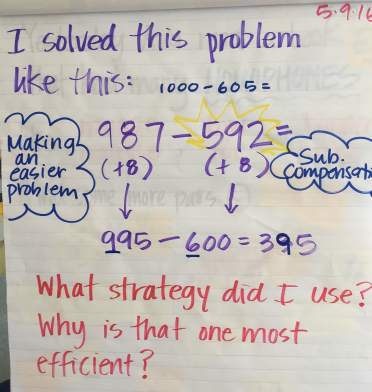 5.9.16
I solved this problem
like this: 1000-605=
987-592=
Making
an
easier
problem
(+8) (+8)
Sub.
Compensati
995-600=395
What strategy did I use?
Why is that one most
efficient?